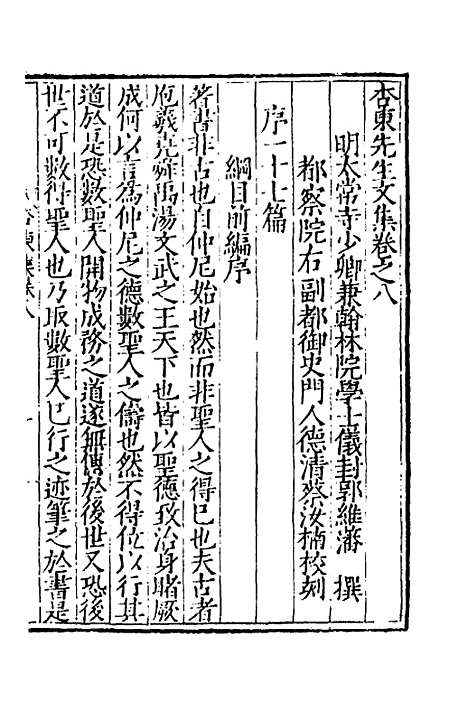 杏東先生文集卷之八
明太常寺少卿兼翰林院學士儀封郭維藩　撰
都察院右副都御史門人德清蔡汝楠校刻
序一十七篇
綱目前編序
著書非古也自仲尼始也然而非聖人之得已也夫古者
庖羲堯舜禹湯文武之王天下也皆以聖德致治身睹厥
成何以言為仲尼之德數聖人之儔也然不得位以行其
道於是恐數聖人開物成務之道遂無傳於後世又恐後
世不可數得聖人也乃取數聖人已行之迹筆之於書是
杏東集卷八